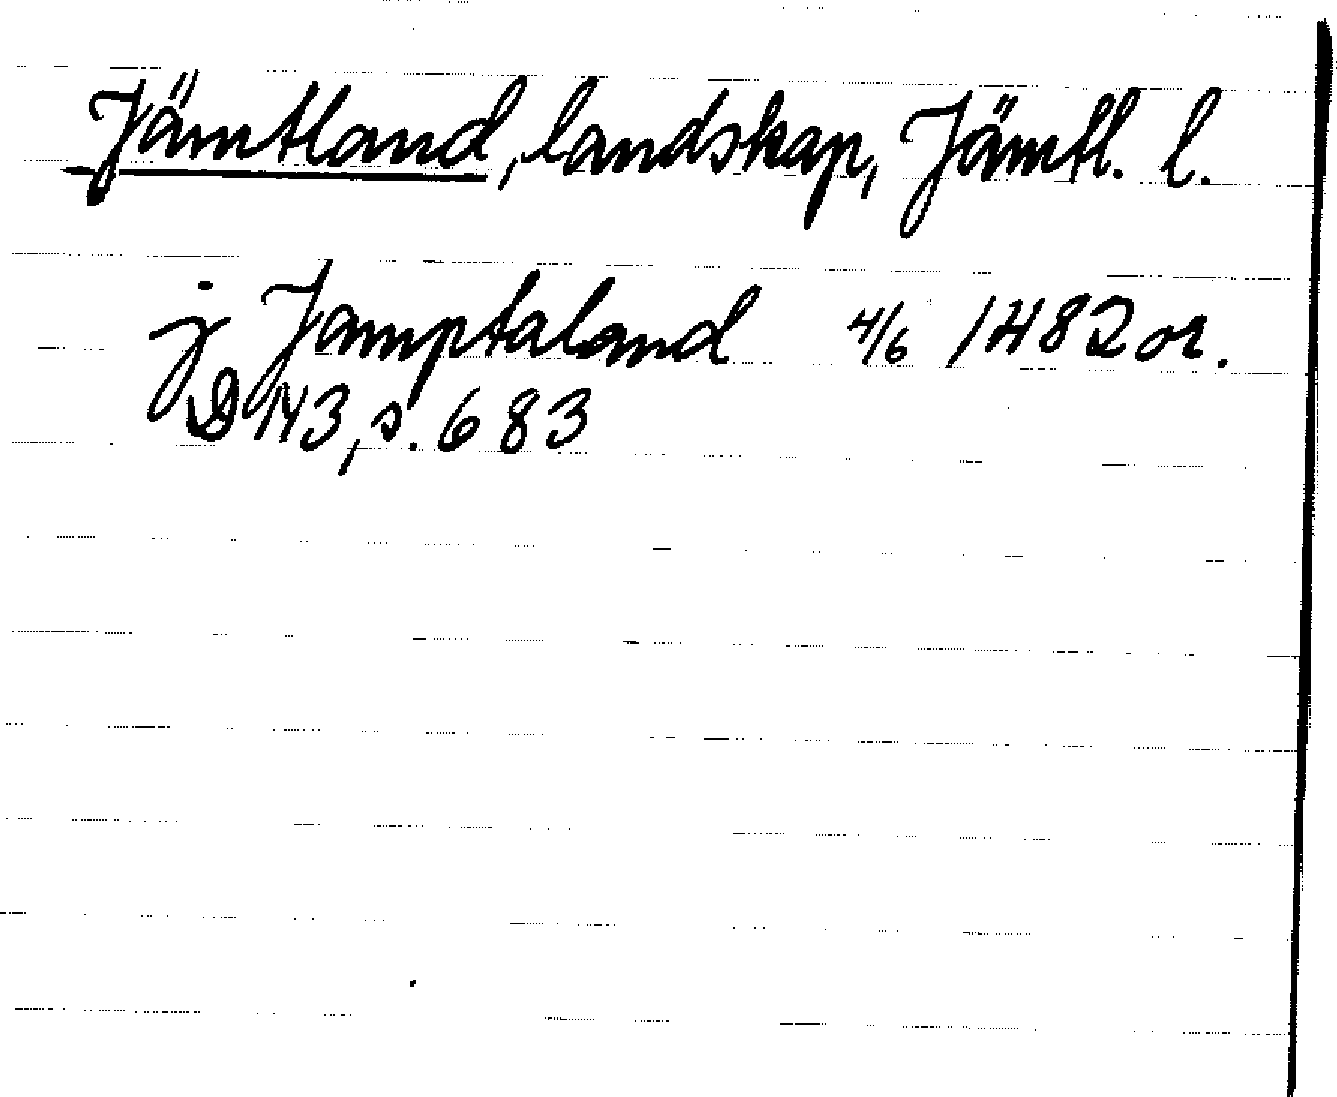 Jämtland, landskap, Jämtl. l.
j Jamptaland 4/6 1482 or.
D 143, s. 683